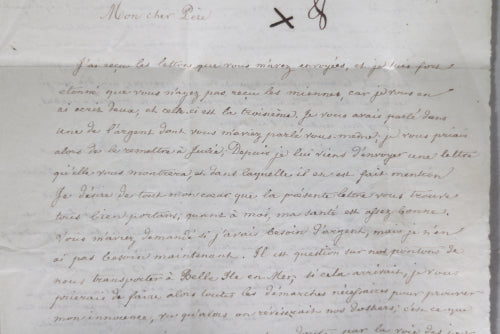 Mon cher Père
× 8
J'ai reçu les lettres que vous m'avez envoyées, et je suis fort
étonné que vous n'ayez pas reçu les miennes, car je vous en
ai écrit deux, et celle-ci est la troisième. Je vous avais parlé dans
une de l'argent dont vous m'aviez parlé vous même; je vous priais
alors de le remettre à Julie. Depuis je lui viens d'envoyer une lettre
qu'elle vous montrera, et dans laquelle il en est fait mention
Je désire de tout mon cœur que la présente lettre vous trouve
tous bien portans, quant à moi, ma santé est assez bonne.
Vous m'aviez demandé si j'avais besoin d'argent, mais je n'en
ai pas besoin maintenant. Il est question sur nos pontons de
nous transporter à Belle Ile en Mer, si cela arrivait, je vous
prierais de faire alors toutes les démarches nécessaires pour prouver
mon innocence, vu qu'alors on réviserait nos dossiers; c'est ce que
par la voie des